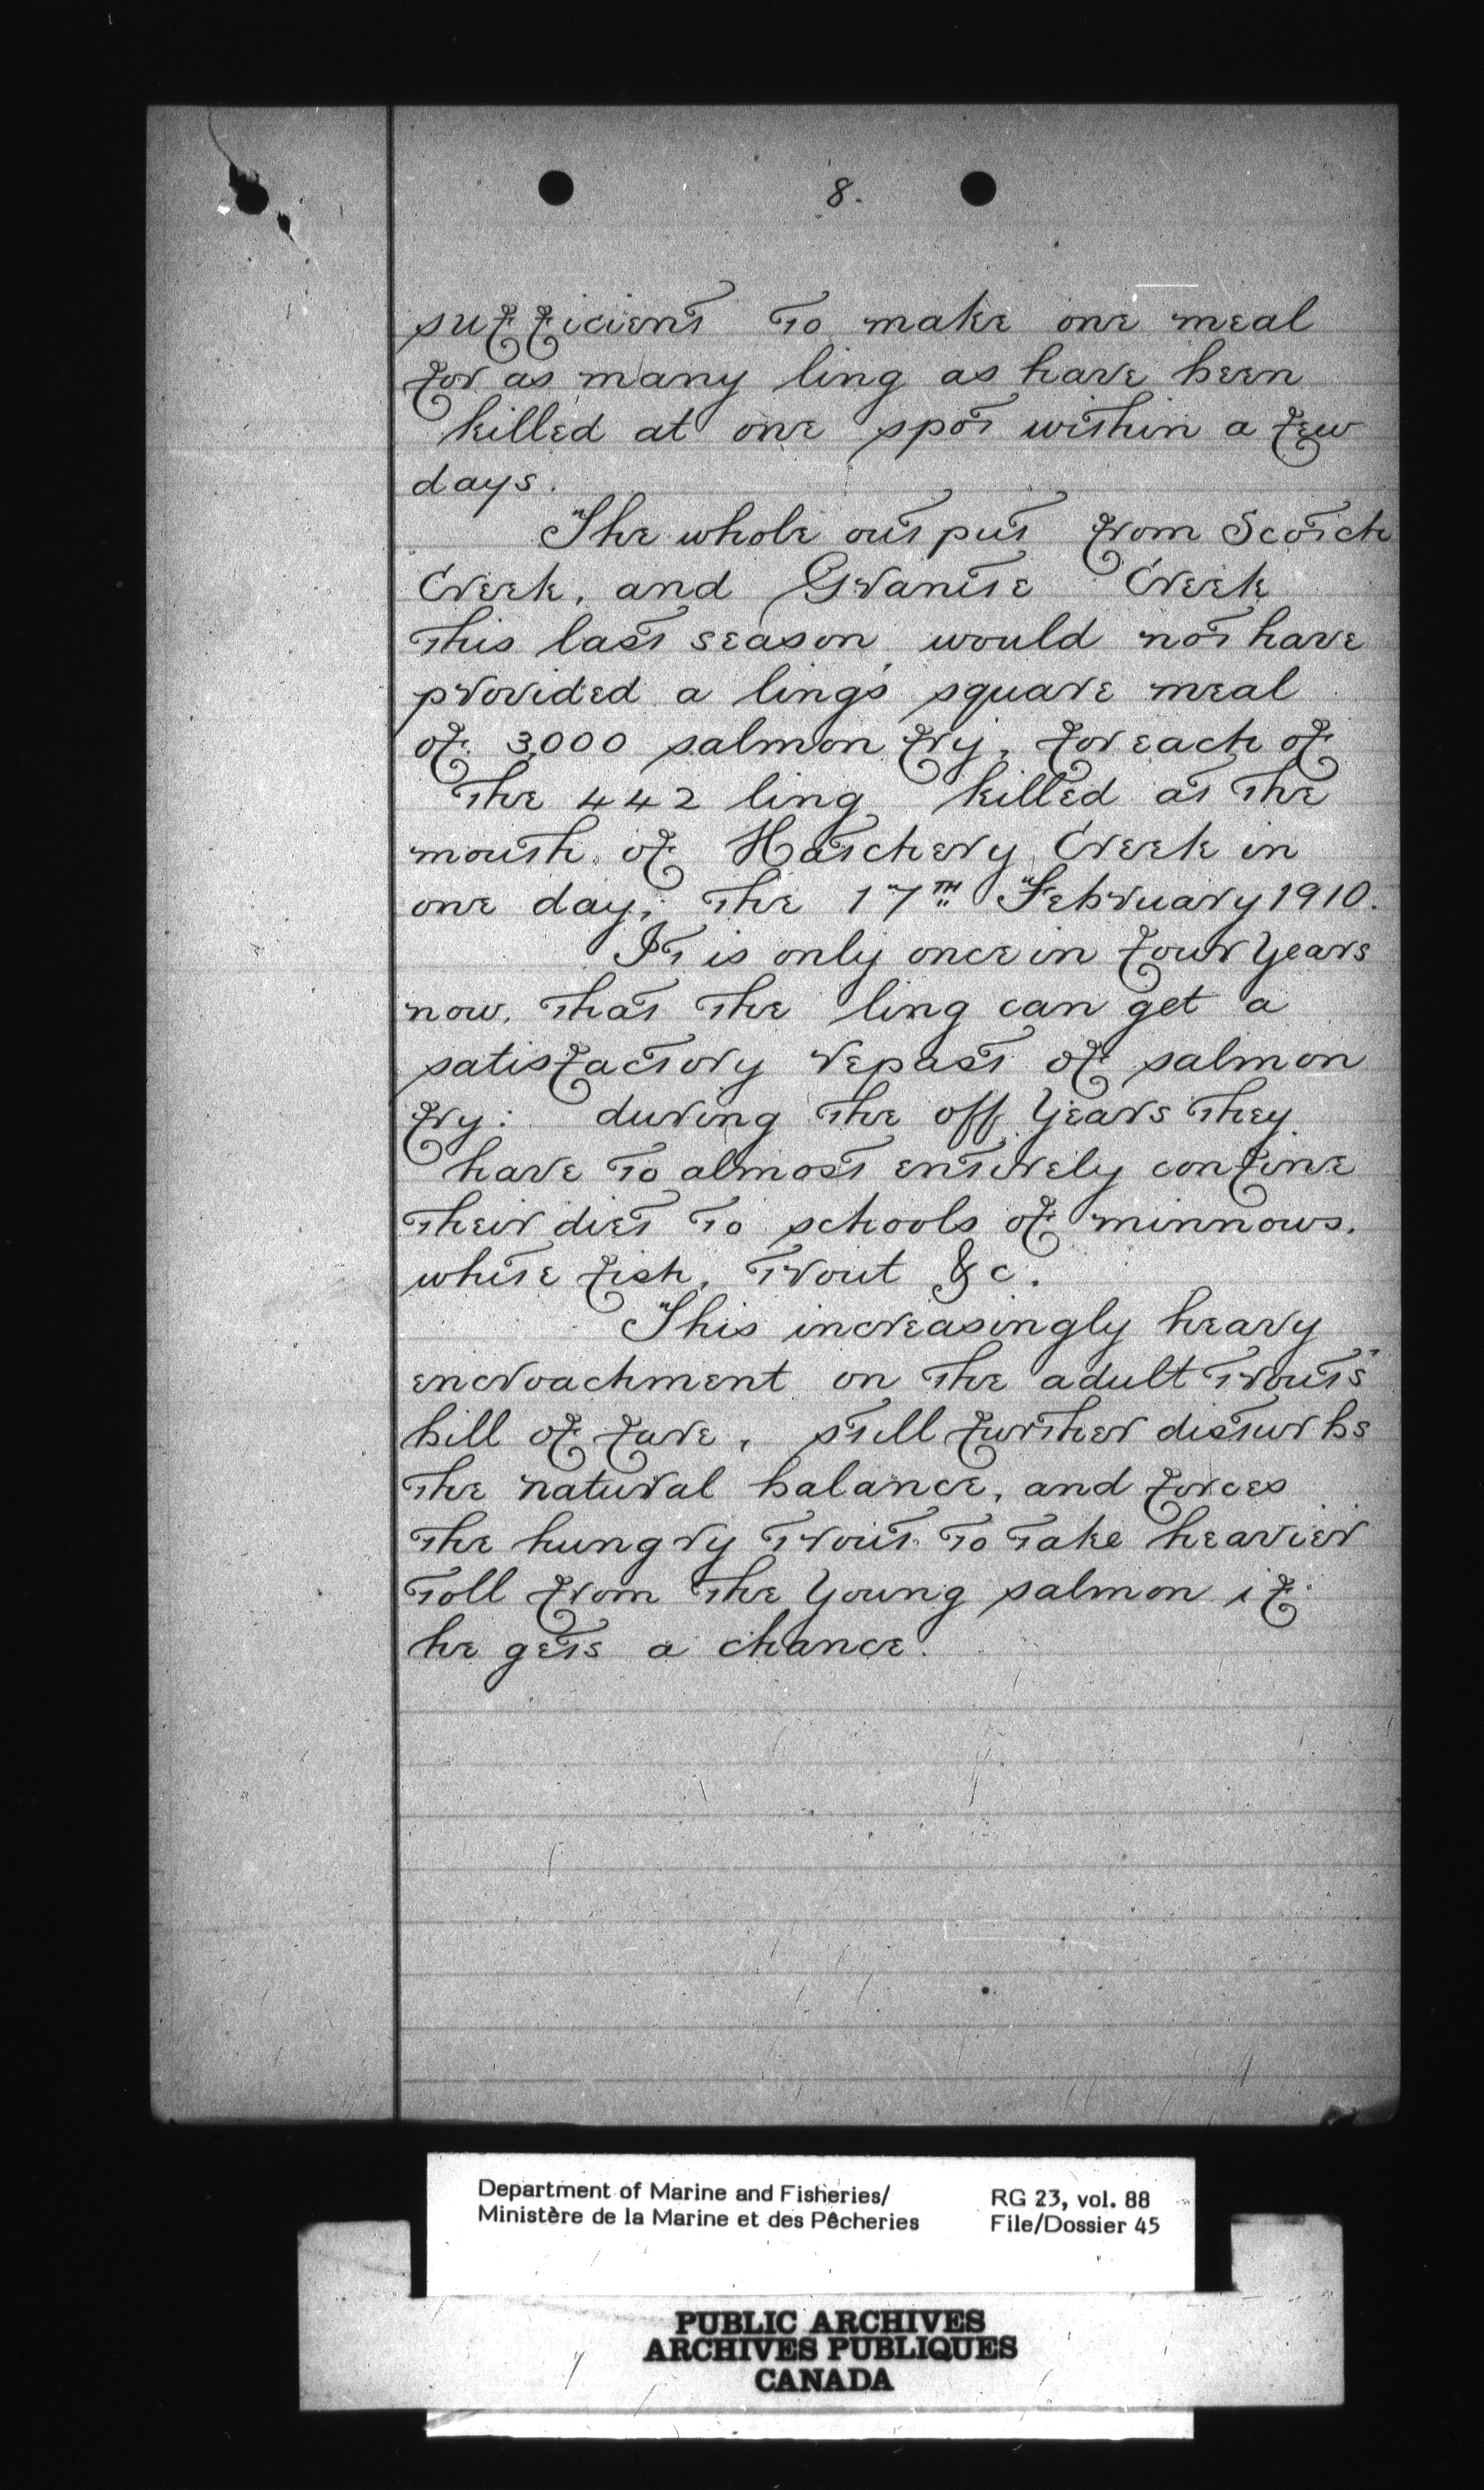 8.
sufficient to make one meal
for as many ling as have been
killed at one spot within a few
days.
The whole output from Scotch
Creek, and Granite Creek
this last season, would not have
provided a ling's square meal
of 3,000 salmon fry, for each of
the 442 ling killed at the
mouth of Hatchery Creek in
one day; the 17TH February 1910.
It is only once in four years
now, that the ling can get a
satisfactory repast of salmon
fry: during the off years they
have to almost entirely confine
their diet to schools of minnows,
white fish, trout &c.
This increasingly heavy
encroachment on the adult trouts'
bill of fare, still further disturbs
the natural balance, and forces
the hungry trout to take heavier
toll from the young salmon if
he gets a chance.
Department of Marine and Fisheries/ RG 23, vol. 88
Ministère de la Marine et des Pêcheries File/Dossier 45
PUBLIC ARCHIVES
ARCHIVES PUBLIQUES
CANADA